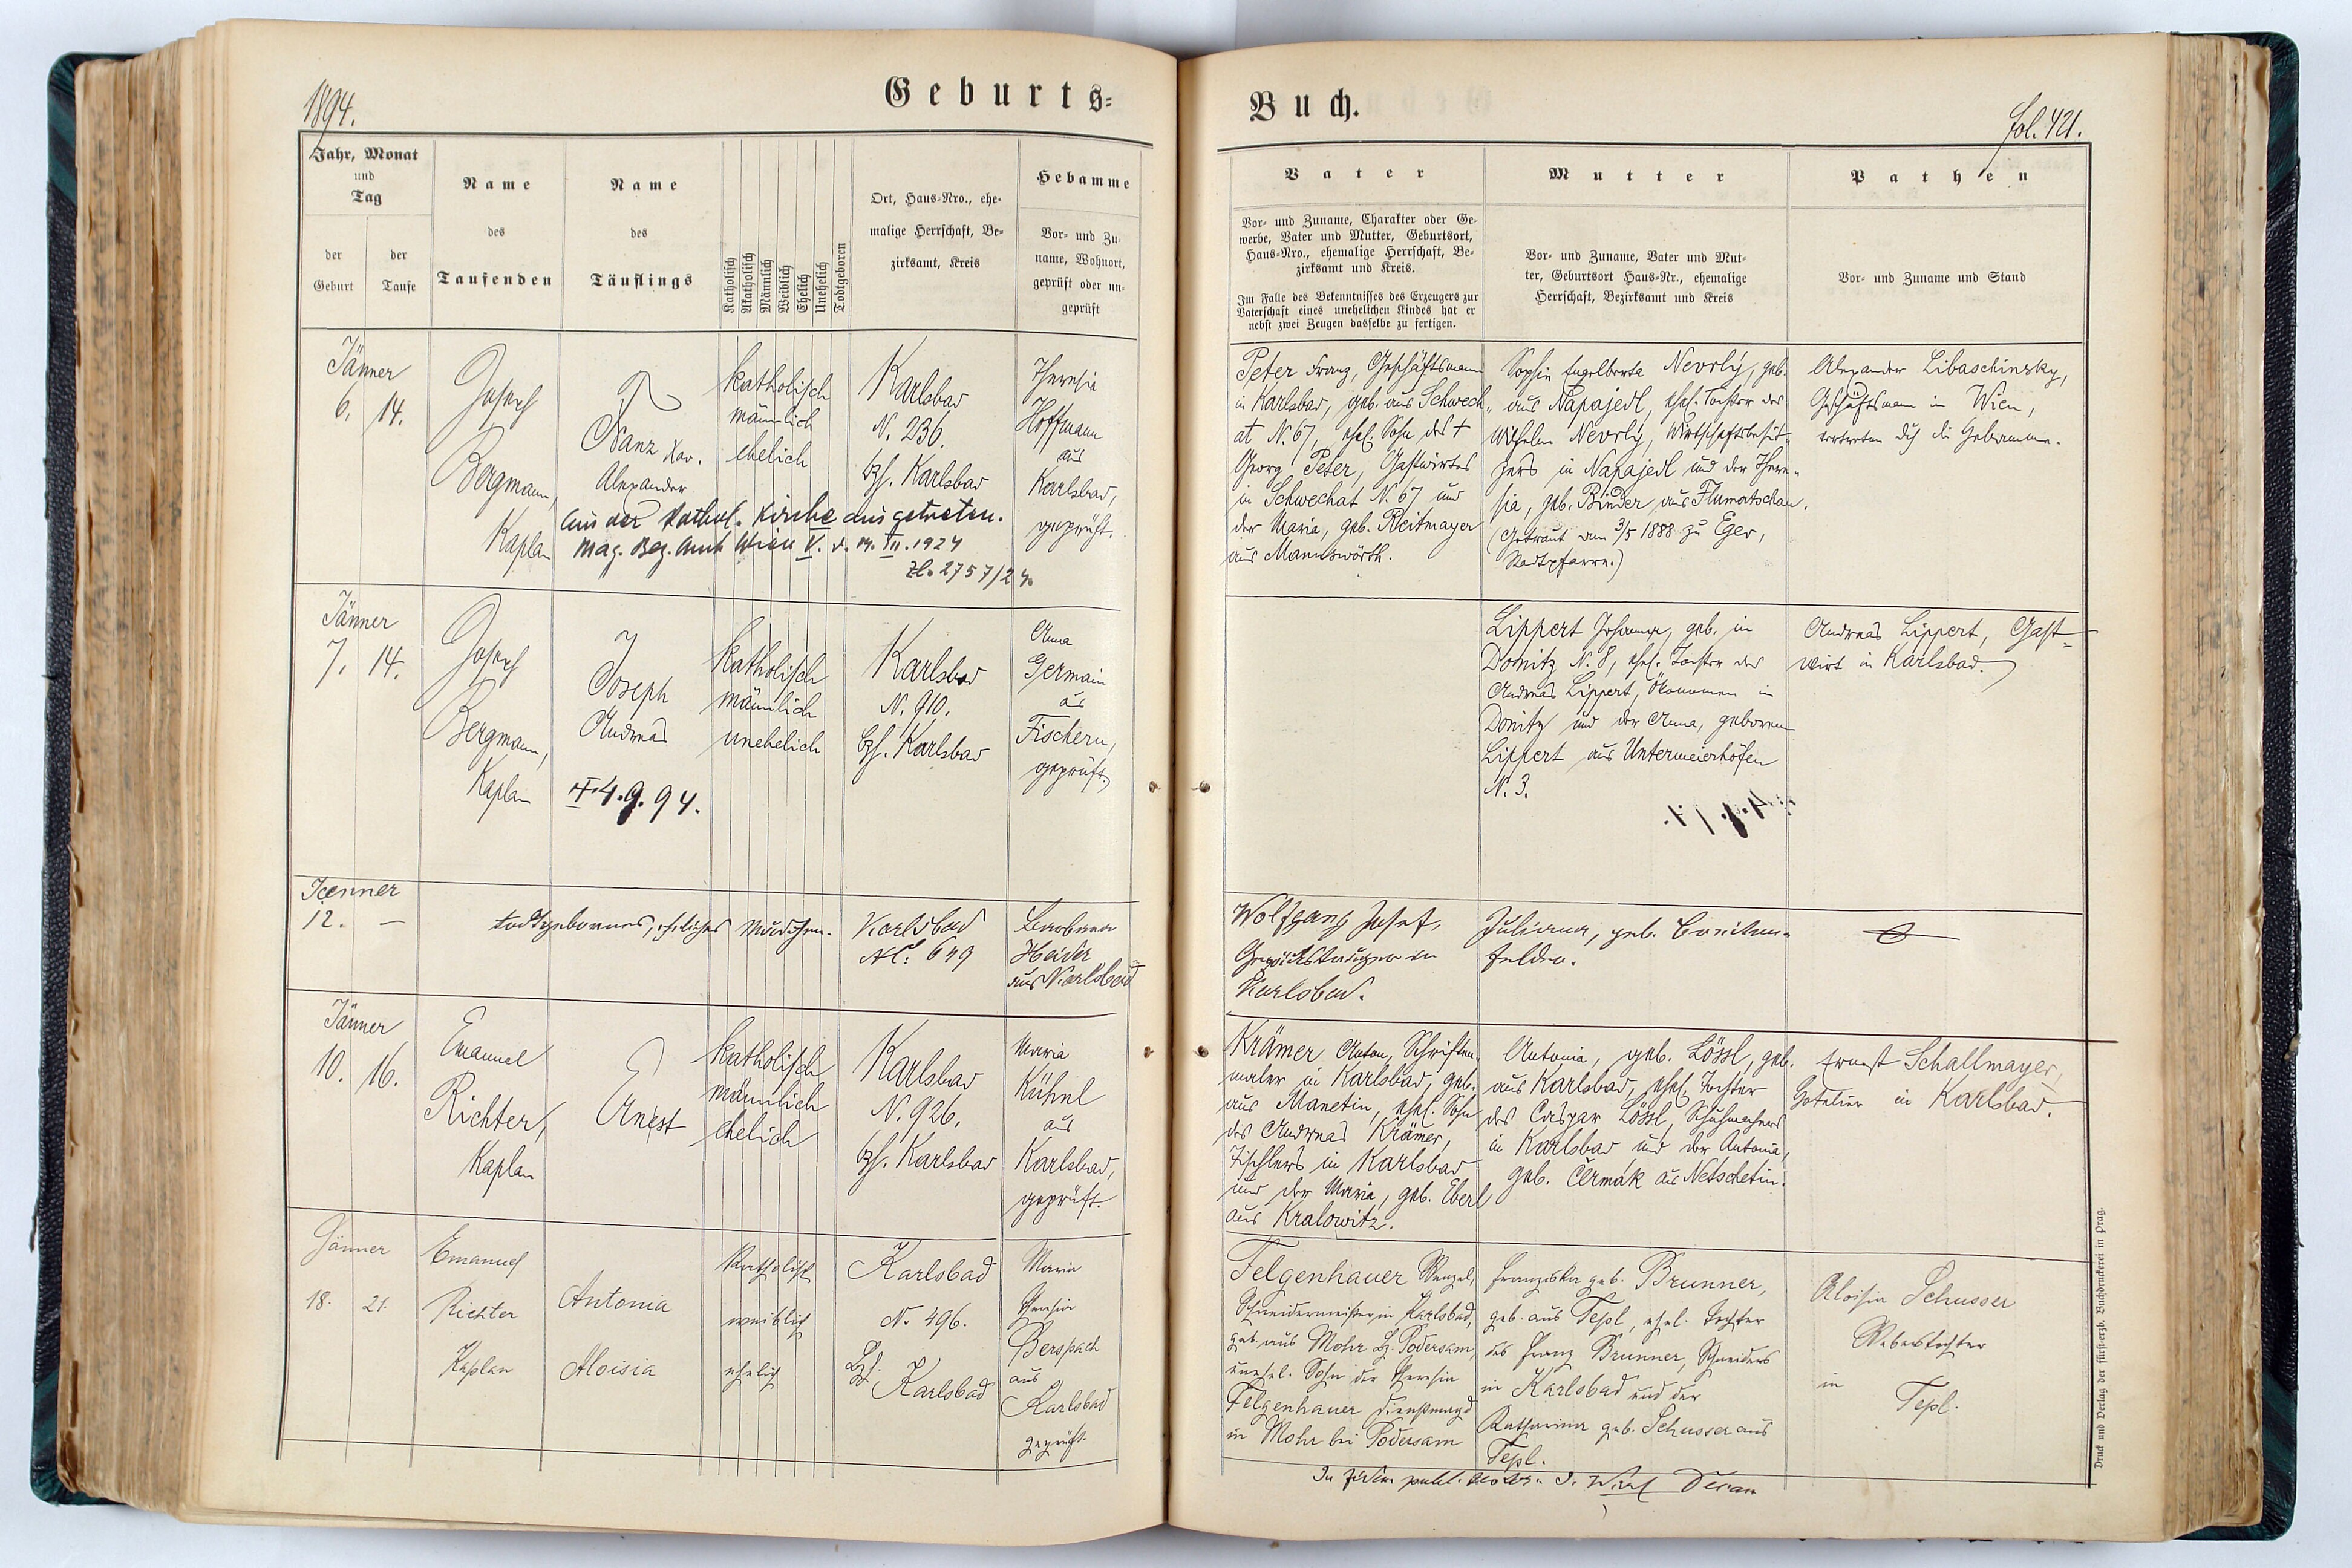 1894.
Geburts=
Jahr, Monat
und
Tag
der
Geburt
der
Taufe
Name
des
Taufenden
Name
des
Täuflings
Katholisch
Akatholisch
Männlich
Weiblich
Ehelich
Unehelich
Todtgeboren
Ort, Haus-Nro., ehe-
malige Herrschaft, Be-
zirksamt, Kreis
Hebamme
Vor- und Zu-
name, Wohnort,
geprüft oder un-
geprüft
Jänner
6. 14.
Joseph
Bergmann,
Kaplan
Alexander
Aus der kathol. Kirche ausgetreten.
Mag. Bez. Amt Wien V. v. 19. III. 1924
Zl. 2757/24
katholisch
männlich
ehelich
Karlsbad
N. 236.
bzh. Karlsbad
Theresia
Hoffmann
aus
Karlsbad,
geprüft.
Jänner
7. 14.
Joseph
Bergmann,
Kaplan
Joseph
Andreas
4.9.94.
katholisch
männlich
unehelich
Karlsbad
N. 910.
bzh. Karlsbad
Anna
Germain
aus
Fischern,
geprüft.
Jaenner
12. —
todtgebornes, eheliches Mädchen.
Karlsbad
No: 649
Barbara
Heider
aus Karlsbad
Jänner
10. 16.
Emanuel
Richter,
Kaplan
Ernest
katholisch
männlich
ehelich
Karlsbad
N. 926.
bzh. Karlsbad
Maria
Kühnl
aus
Karlsbad,
geprüft.
Jänner
18. 21.
Emanuel
Richter
Kaplan
Antonia
Aloisia
katholisch
weiblich
ehelich
Karlsbad
N. 496.
Bzh. Karlsbad
Maria
Theresia
Berspach
aus
Karlsbad
geprüft
Buch.
fol. 421.
Vater
Vor- und Zuname, Charakter oder Ge-
werbe, Vater und Mutter, Geburtsort,
Haus-Nro., ehemalige Herrschaft, Be-
zirksamt und Kreis.
Im Falle des Bekenntnisses des Erzeugers zur
Vaterschaft eines unehelichen Kindes hat er
nebst zwei Zeugen dasselbe zu fertigen.
Mutter
Vor- und Zuname, Vater und Mut-
ter, Geburtsort Haus-Nr., ehemalige
Herrschaft, Bezirksamt und Kreis
Pathen
Vor- und Zuname und Stand
Peter Franz, Geschäftsmann
in Karlsbad, geb. aus Schwech-
at N. 67, ehel. Sohn des †
Georg Peter, Gastwirtes
in Schwechat N. 67 und
der Maria, geb. Reitmayer
aus Mannswörth.
Sophie Engelberta Nevrlý, geb.
aus Napajedl, ehel. Tochter des
Wilhelm Nevrlý, Wirtschaftsbesit-
zers in Napajedl und der There-
sia, geb. Binder, aus Flumatschau.
(Getraut am 3/5 1888 zu Eger,
Stadtpfarre.)
Alexander Libaschinsky,
Geschäftsmann in Wien,
vertreten dch die Hebamme.
Lippert Johanna, geb. in
Donitz N. 8, ehel. Tochter des
Andreas Lippert, Ökonomen in
Donitz und der Anna, geboren
Lippert aus Untermeierhöfen
N. 3.
Andreas Lippert, Gast-
wirt in Karlsbad.
Wolfgang Josef,
in
Karlsbad.
Juliana, geb. Breiten-
felder.
Krämer Anton, Schriften-
maler in Karlsbad, geb.
aus Manetin, ehel. Sohn
des Andreas Krämer,
Tischlers in Karlsbad
und der Maria, geb. Eberl
aus Kralowitz.
Antonia, geb. Lössl, geb.
aus Karlsbad, ehel. Tochter
des Caspar Lössl, Schuhmachers
in Karlsbad und der Antonia,
geb. Čermak aus Netschetin.
Ernest Schallmayer,
Hotelier in Karlsbad.
Felgenhauer Wenzel,
Schneidermeister in Karlsbad,
geb. aus Mohr Bz. Podersam,
unehel. Sohn der Theresia
Felgenhauer Dienstmagd
in Mohr bei Podersam
Franziska geb. Brunner,
geb. aus Tepl, ehel. Tochter
des Franz Brunner, Schneiders
in Karlsbad und der
Katharina geb. Schusser aus
Tepl.
Aloisia Schusser
Weberstochter
in
Tepl.
In fidem Decan
Druck und Verlag der fürst-erzb. Buchdruckerei in Prag.